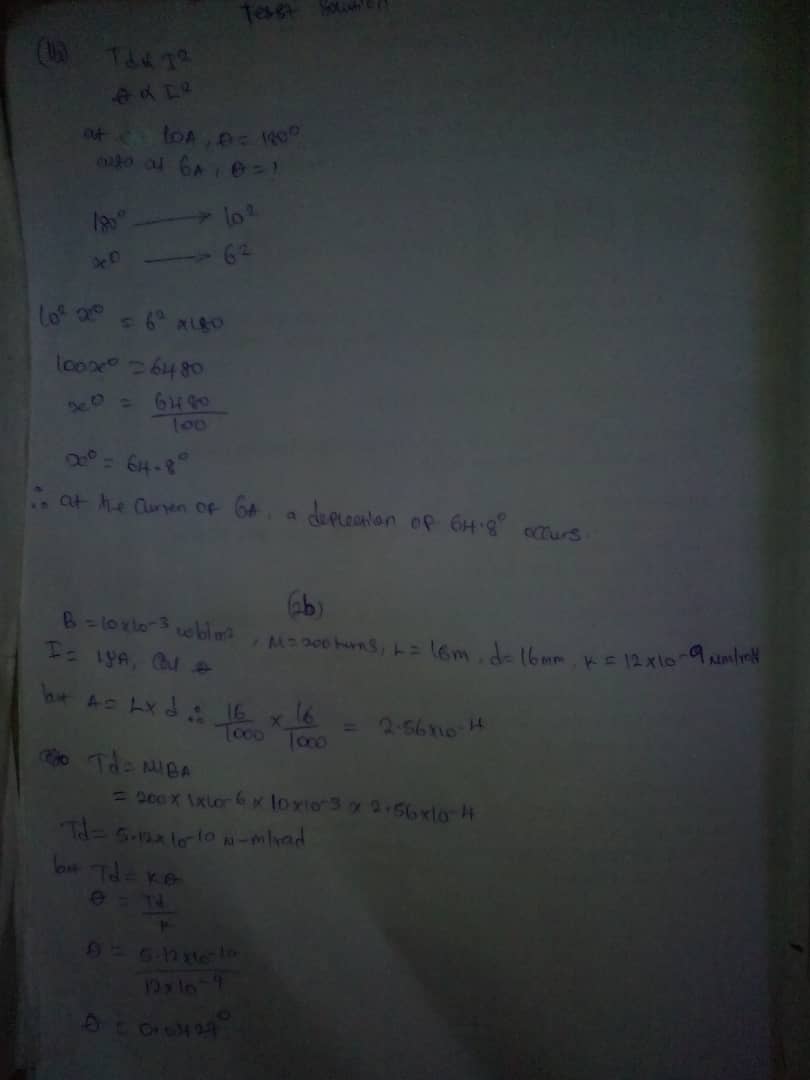 Test Solution
Td α I²
θ α I²
at 10A, θ = 180°
at 6A, θ = ?
180° → 10²
x° → 6²
10² x° = 6² x 180
100x° = 6480
x° = 6480
100
x° = 64.8°
∴ at the Curren of 6A, a deflection of 64.8° occurs.
(2b)
B = 10x10-3 wb/m², N = 200 turns, L = 16m, d = 16mm, K = 12x10-9
I = 1μA,
but A = L x d ∴ 16/1000 x 16/1000 = 2.56x10-4
Td = NIBA
= 200 x 1x10-6 x 10x10-3 x 2.56x10-4
Td = 5.12x10-10 N-m/rad
but Td = Kθ
θ = Td
K
θ = 5.12x10-10
12x10-9
θ =